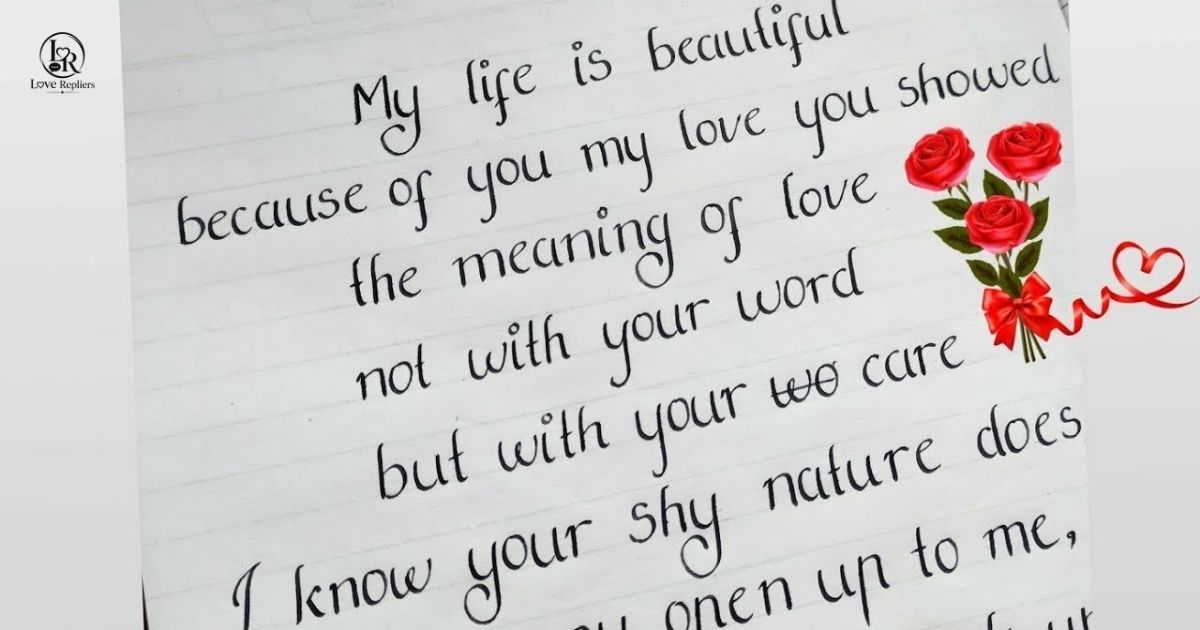 LR
Love Repliers
My life is beautiful
because of you my love you showed
the meaning of love
not with your word
but with your wo care
I know your shy nature does
open up to me,